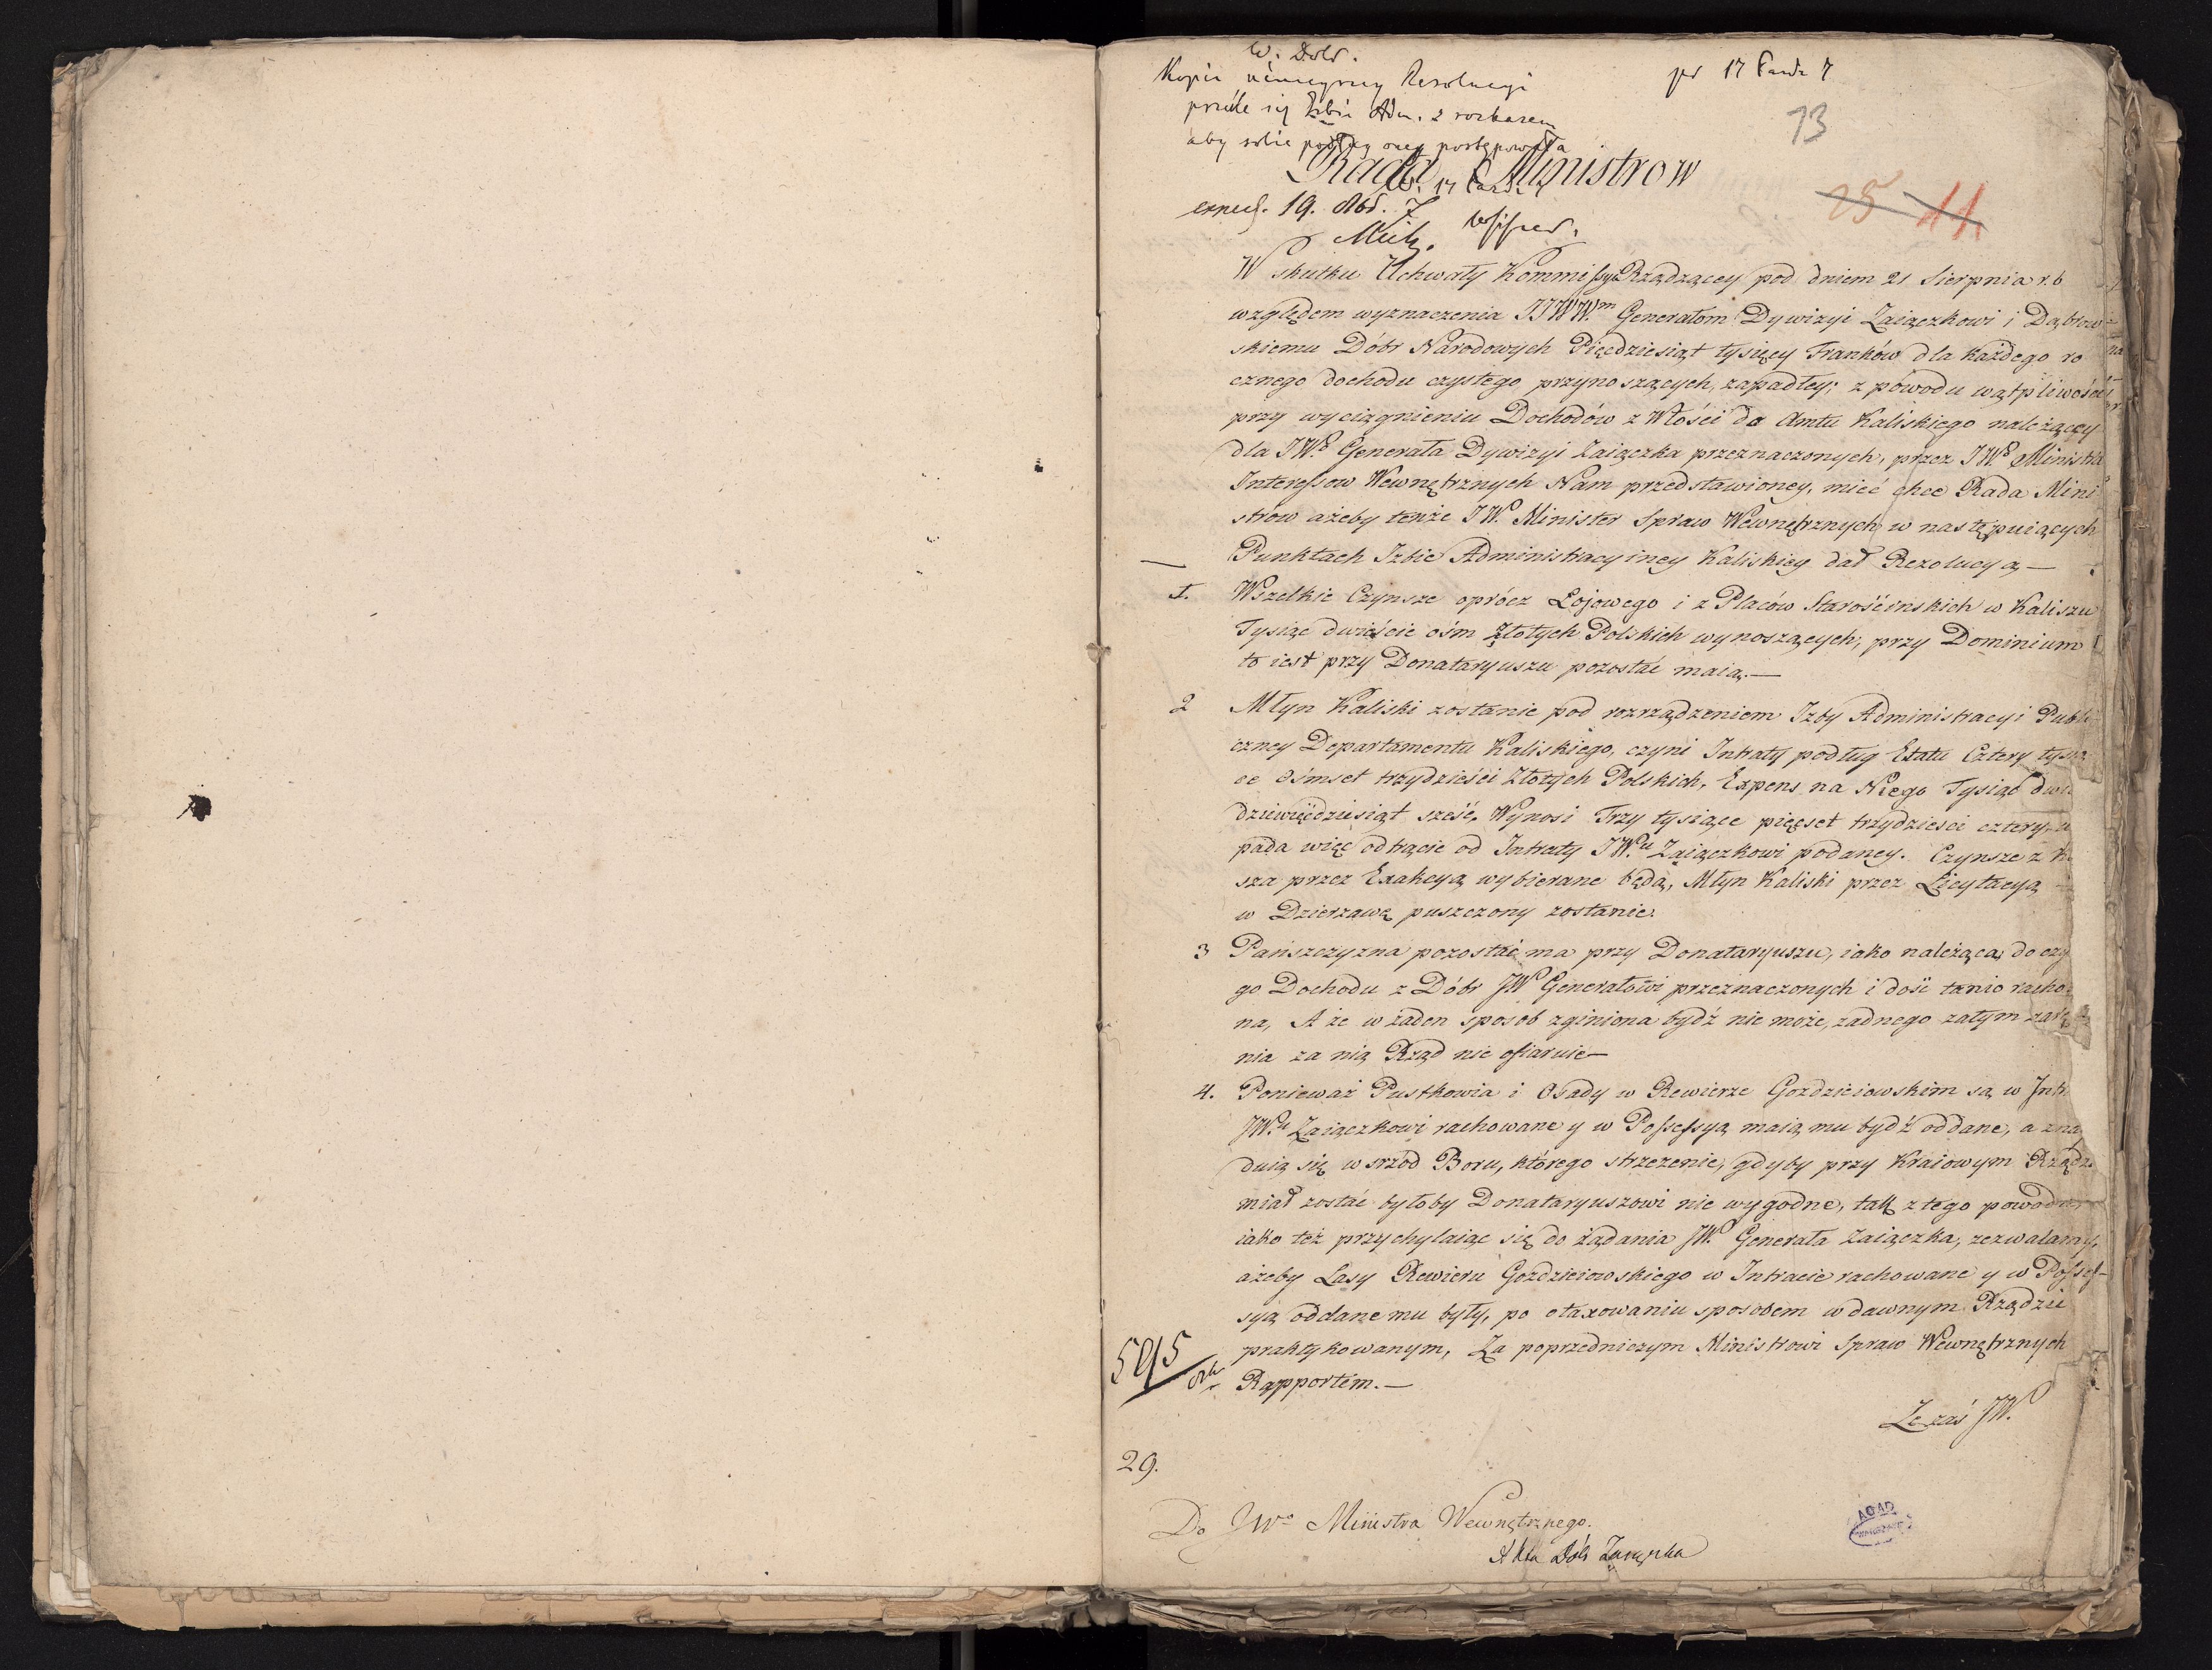 W. Dobr.
Kopia niniejszey Resolucyi
prześle się Izbie Adm. z rozkazem
aby sobie podług oney postępowała
pr 17 Paźdz 7
13
Rada Ministrow
W. 17 Paźdz
exped. 19. 8bs. 7
25 11
W skutku Uchwały Kommissyi Rządzącey pod dniem 21 Sierpnia r. b
względem wyznaczenia JJWW.m Generałom Dywizyi Zaiączkowi i Dąbrow-
skiemu Dóbr Narodowych Pięćdziesiąt tysięcy Franków dla każdego ro
cznego dochodu czystego przynoszących, zapadłey; z powodu wątpliwości
przy wyciągnieniu Dochodów z Włości do Amtu Kaliskiego należący
dla JW.o Generała Dywizyi Zaiączka przeznaczonych, przez JW.o Ministra
Interessow Wewnętrznych Nam przedstawioney, mieć chce Rada Mini
strow ażeby tenże JW. Minister Spraw Wewnętrznych w następuiących
Punktach Izbie Administracyiney Kaliskiey dał Rezolucyą —
1. Wszelkie Czynsze oprócz Łojowego i z Placów Starościńskich w Kaliszu
Tysiąc dwieście ośm Złotych Polskich wynoszących, przy Dominium
to iest przy Donataryuszu pozostać maią. —
2 Młyn Kaliski zostanie pod rozrządzeniem Izby Administracyi Publi
czney Departamentu Kaliskiego, czyni Intraty podług Etatu Cztery tysią
ce Ośmset trzydzieści Złotych Polskich, Expens na Niego Tysiąc dwie
dziewięćdziesiąt sześć, Wynosi Trzy tysiące pięćset trzydzieści cztery, w
pada więc odtrącić od Intraty JW.u Zaiączkowi podaney. Czynsze z K
sza przez Exakcyą wybierane będą, Młyn Kaliski przez Licytacyą
w Dzierzawę puszczony zostanie.
3 Pańszczyzna pozostać ma przy Donataryuszu, iako należąca do czy
go Dochodu z Dóbr JW Generałowi przeznaczonych i dość tanio racho
na, A że w żaden sposob zginiona bydź nie może, żadnego zatym zarę
nia za nią Rząd nie ofiaruie —
4. Ponieważ Pustkowia i Osady w Rewierze Gozdzieiowskim są w Intr
JW.u Zaiączkowi rachowane y w Possessyą maią mu bydź oddane, a zna
duią się wsrzod Boru, którego strzeżenie, gdyby przy Kraiowym Rządz
miał zostać byłoby Donataryuszowi nie wygodne, tak z tego powodu
iako też przychylaiąc się do żądania JW. Generała Zaiączka, zezwalamy,
ażeby Lasy Rewieru Gozdzieiowskiego w Intracie rachowane y w Posses-
syą oddane mu były, po otaxowaniu sposobem w dawnym Rządzie
praktykowanym, Za poprzedniczym Ministrowi Spraw Wewnętrznych
Rapportem. —
595
Że zaś JW.
29.
Do JWo Ministra Wewnętrznego.
Akta Dóbr Zaiączka
AGAD